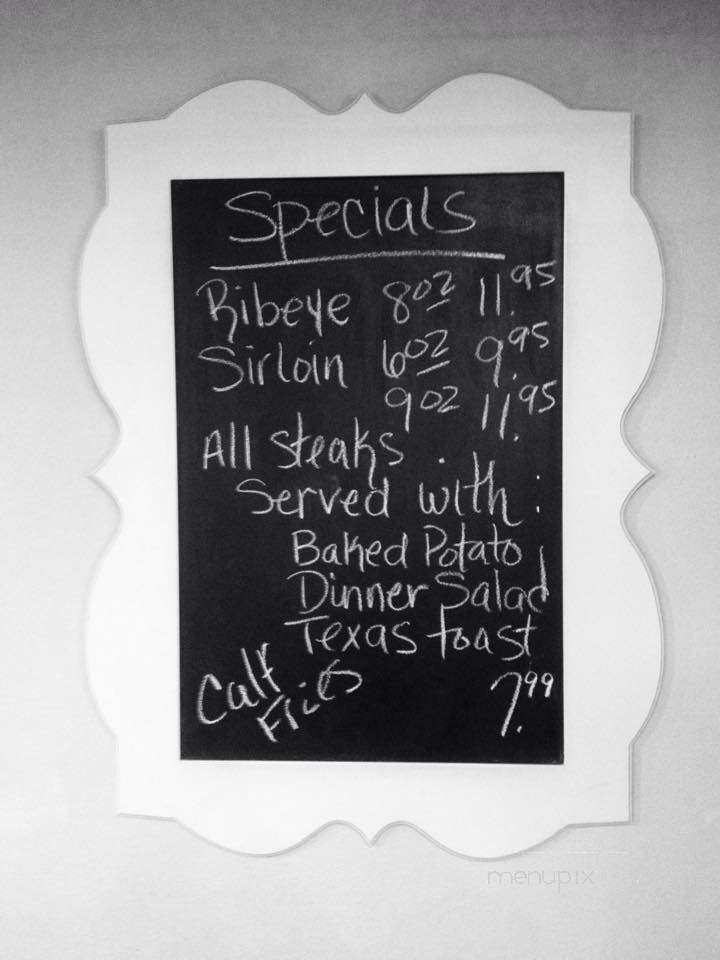 Specials
Ribeye 8oz 11.95
Sirloin 6oz 9.95
9oz 11.95
All steaks
Served with:
Baked Potato
Dinner Salad
Texas toast
Calf
Fries 7.99
menupix